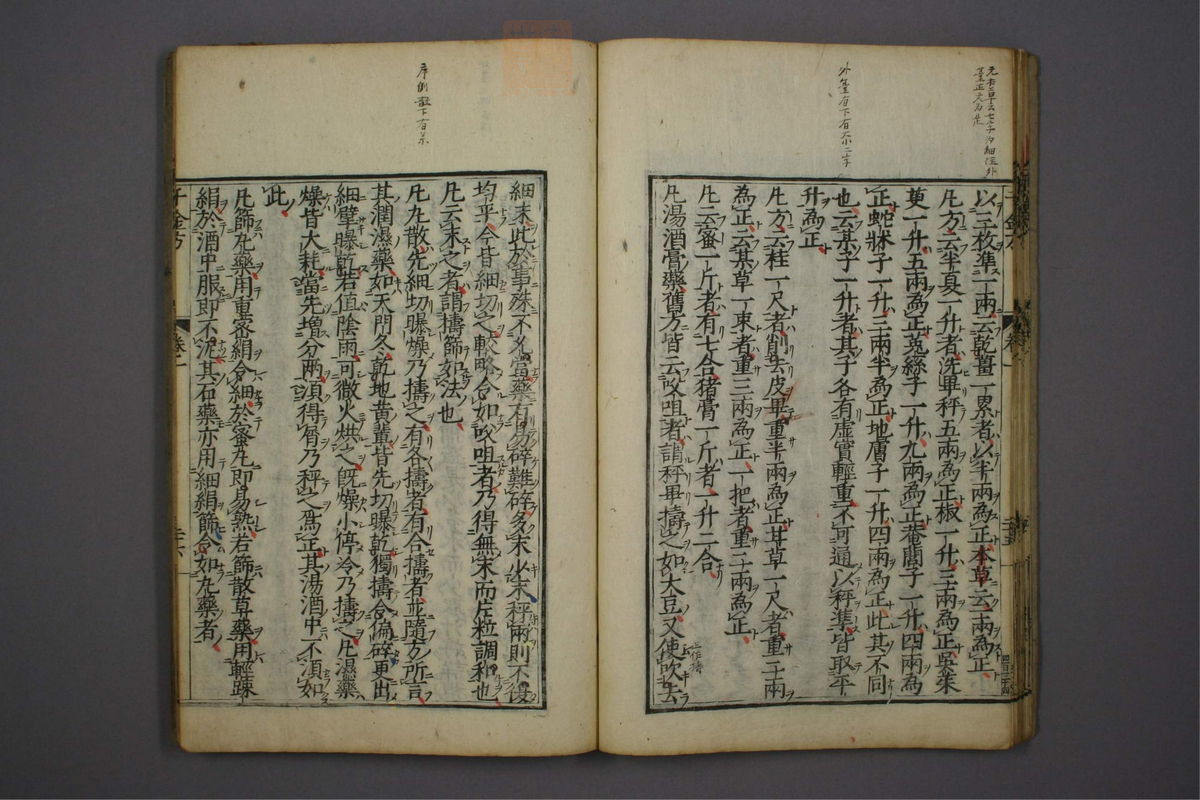 以三枚準一兩云乾薑一累者以半兩為正本草云一兩為正
凡方云半夏一升者洗畢秤五兩為正椒一升三兩為正吳茱
萸一升五兩為正菟絲子一升九兩為正菴䕡子一升四兩為
正蛇牀子一升三兩半為正地膚子一升四兩為正此其不同
也云某子一升者其子各有虛實輕重不可通以秤準皆取平
升為正
凡方云桂一尺者削去皮畢重半兩為正甘草一尺者重二兩
為正云某草一束者重三兩為正一把者重二兩為正
凡云蜜一斤者有七合豬膏一斤者一升二合
凡湯酒膏藥舊方皆云㕮咀者謂秤畢擣之如大豆又使吹去
細末此於事殊不允當藥有易碎難碎多末少末秤兩則不復
均平今皆細切之較略令如㕮咀者乃得無末而片粒調和也
凡云末之者謂擣篩如法也
凡丸散先細切曝燥乃擣之有各擣者有合擣者並隨方所言
其潤濕藥如天門冬乾地黃輩皆先切曝乾獨擣令偏碎更出
細擘曝乾若值陰雨可微火烘之既燥小停冷乃擣之凡濕藥
燥皆大耗當先增分兩須得屑乃秤之為正其湯酒中不須如
此
凡篩丸藥用重密絹令細於蜜丸即易熟若篩散草藥用輕疎
絹於酒中服即不泥其石藥亦用細絹篩令如丸藥者
外臺有下有大小二字
序例散下有藥
千金方
卷一